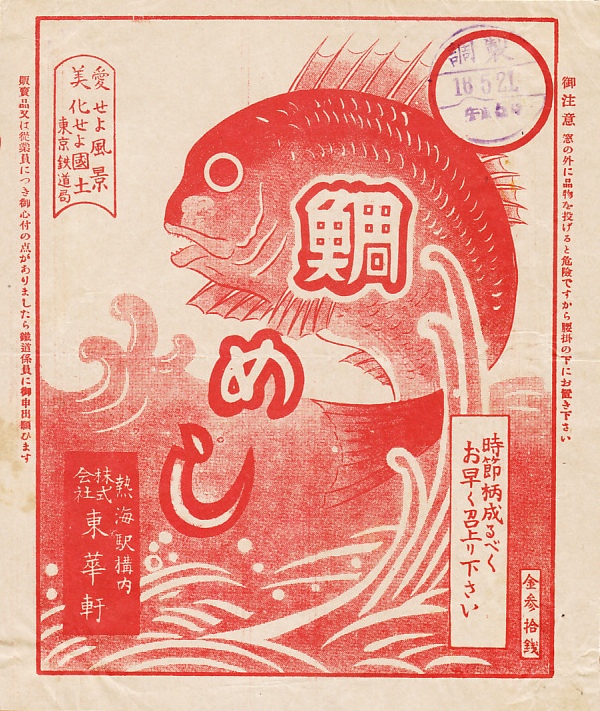 御注意 窓の外に品物を投げると危險ですから腰掛の下にお置き下さい
調製
16.5.21
鯛めし
愛せよ風景
美化せよ國土
東京鉄道局
時節柄成るべく
お早く召上り下さい
金参拾銭
熱海駅構内
株式会社 東華軒
販賣品又は従業員につき御心付の点がありましたら鐵道係員に御申出願ひます